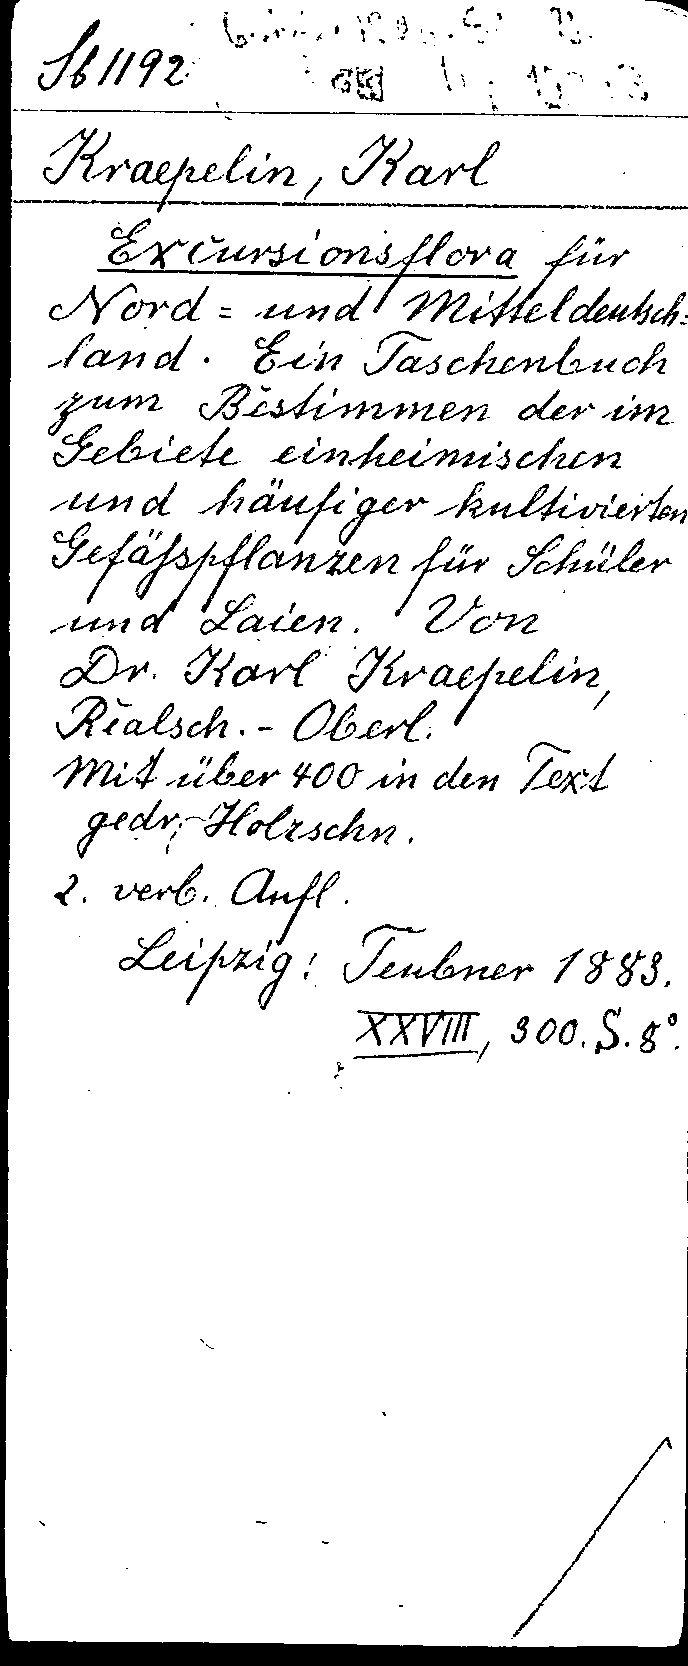 Sb 1192
Kraepelin, Karl
Excursionsflora für
Nord= und Mitteldeutsch=
land. Ein Taschenbuch
zum Bestimmen der im
Gebiete einheimischen
und häufiger kultivierten
Gefässpflanzen für Schüler
und Laien. Von
Dr. Karl Kraepelin,
Realsch.-Oberl.
Mit über 400 in den Text
gedr. Holzschn.
2. verb. Aufl.
Leipzig: Teubner 1883.
XXVIII, 300. S. 8°.